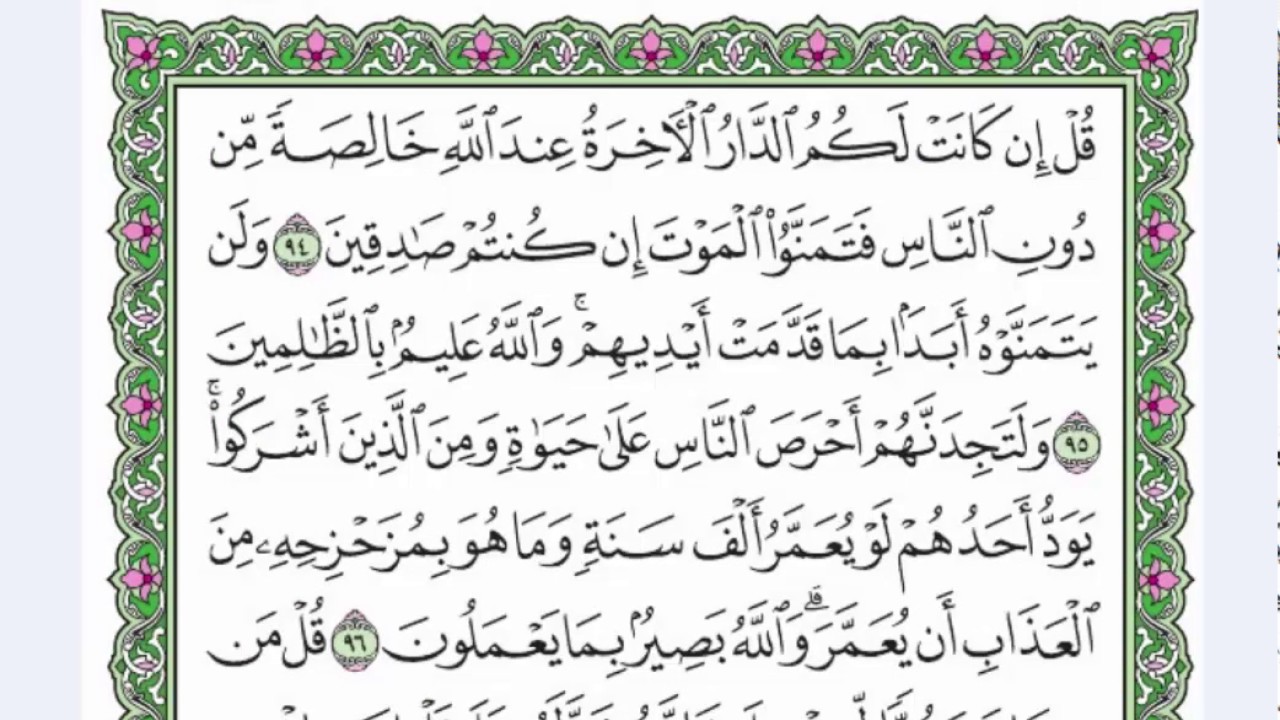 قُلْ إِن كَانَتْ لَكُمُ ٱلدَّارُ ٱلْأَخِرَةُ عِندَ ٱللَّهِ خَالِصَةً مِّن
دُونِ ٱلنَّاسِ فَتَمَنَّوُا۟ ٱلْمَوْتَ إِن كُنتُمْ صَٰدِقِينَ ٩٤ وَلَن
يَتَمَنَّوْهُ أَبَدَۢا بِمَا قَدَّمَتْ أَيْدِيهِمْ ۚ وَٱللَّهُ عَلِيمُۢ بِٱلظَّٰلِمِينَ
٩٥ وَلَتَجِدَنَّهُمْ أَحْرَصَ ٱلنَّاسِ عَلَىٰ حَيَوٰةٍ وَمِنَ ٱلَّذِينَ أَشْرَكُوا۟ ۚ
يَوَدُّ أَحَدُهُمْ لَوْ يُعَمَّرُ أَلْفَ سَنَةٍ وَمَا هُوَ بِمُزَحْزِحِهِۦ مِنَ
ٱلْعَذَابِ أَن يُعَمَّرَ ۗ وَٱللَّهُ بَصِيرُۢ بِمَا يَعْمَلُونَ ٩٦ قُلْ مَن